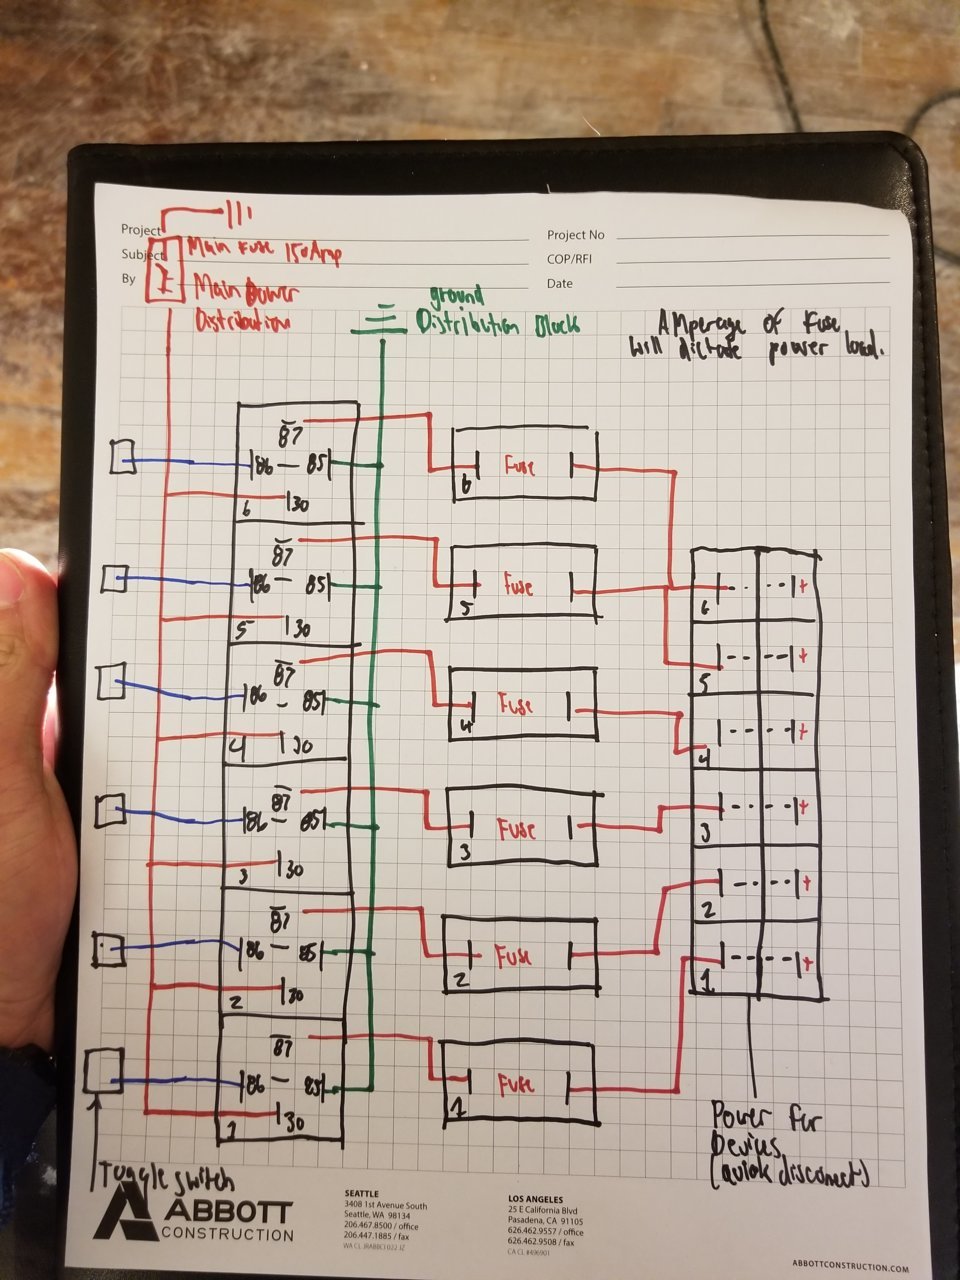 Project
Subject
By
Project No
COP/RFI
Date
Main Fuse 150 Amp
Main Power
Distribution
ground
Distribution Block
Amperage of Fuse
will dictate power load.
87
86 85
30
6
Fuse
6
87
86 85
30
5
Fuse
5
87
86 85
30
4
Fuse
4
87
86 85
30
3
Fuse
3
87
86 85
30
2
Fuse
2
87
86 85
30
1
Fuse
1
6 +
5 +
4 +
3 +
2 +
1 +
Power for
Devices
(quick disconnect)
Toggle switch
ABBOTT
CONSTRUCTION
SEATTLE
3408 1st Avenue South
Seattle, WA 98134
206.467.8500 / office
206.447.1885 / fax
LOS ANGELES
25 E California Blvd
Pasadena, CA 91105
626.462.9557 / office
626.462.9508 / fax
CA CL #496901
ABBOTTCONSTRUCTION.COM